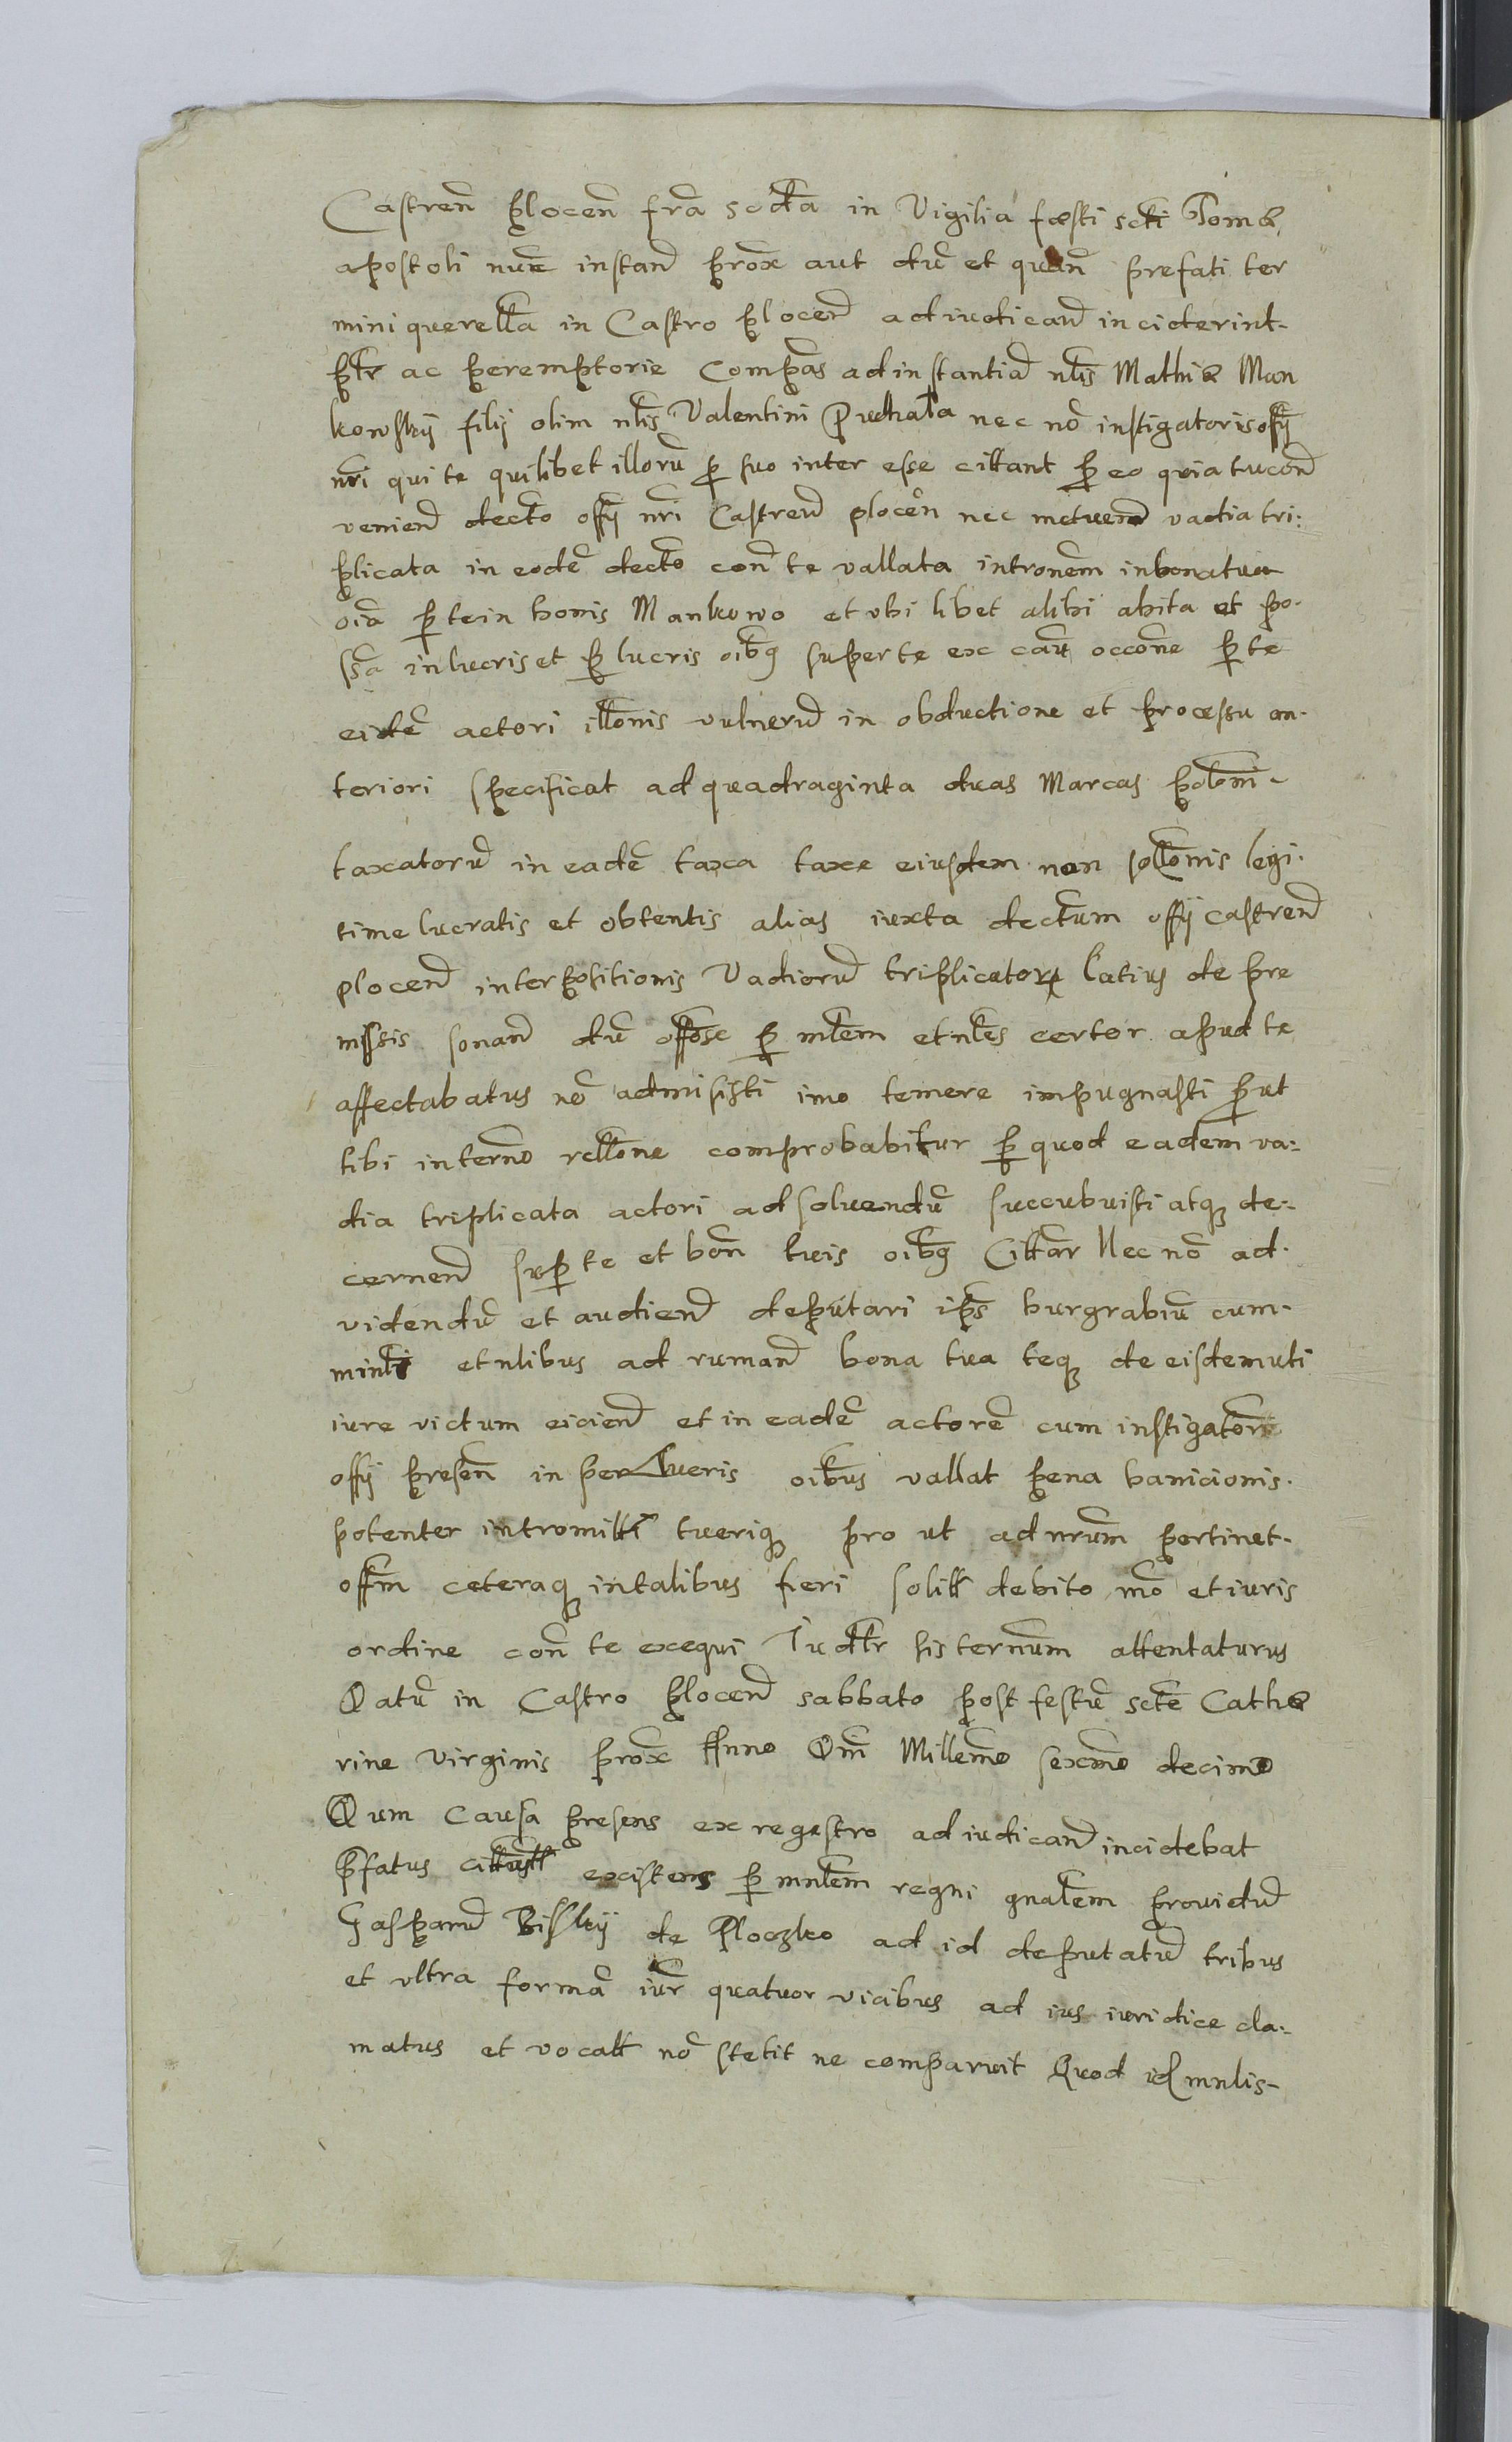 Castren̄ Plocen̄ fr̄a sc̄da in Vigilia fæsti sct̄i Tomæ
apostoli nūc instan̄ prox̄ aut dū et quan̄ prefati ter
mini querell̄a in Castro Plocen̄ adiudican̄ inciderint
pt̄r ac peremptorie Comp̄as ad instantiā nl̄is Mathiæ Man
kowskij filij olim nl̄is Valentini Puchała nec nō instigatoris offij
nr̄i qui te quilibet illorū p̄ suo inter esse cittant p̄ eo quia tu con̄
venien̄ dect̄o offij nr̄i Castren̄ plocen̄ nec metuens vadia tri:
plicata in eodē dect̄o con̄ te vallata intron̄em in bona tua
oīa p̄ te in bonis Mankowo et vbi libet alibi abita et po-
ss̄a in lucris et p̄ lucris oīb9 super te ex cau̅ occōne p̄ te
eidē actori ill̄onis vulnerū in obductione et processu an-
teriori specificat ad quadraginta duas Marcas polon̄i-
taxatorū in eadē taxa taxe eiusdem non soll̄onis legi.
time lucratis et obtentis alias iuxta dect̄um offij castren̄
plocen̄ interpositionis Vadiorū triplicator̄ latius de pre
missis sonan̄ dū off̄ose p̄ ml̄em et nl̄es certor apud te
affectabatus nō admisisti imo temere impugnasti p̄ut
tibi in tern̄o rell̄one comprobabitur p̄ quod eadem va:
dia triplicata actori ad soluendū succubuisti atq3 de-
cernen̄ sup̄ te et bon̄ tuis oīb9 Citt̄ar Nec nō ad.
videndū et audien̄ deputari ip̄s burgrabiū cum.
minl̄i et nlibus ad ruman̄ bona tua teq3 de eisdem uti
iure victum eicien̄ et in eadē actorē cum instigator̄e
offij presen̄ in per lueris oīb̄us vallat pena banicionis.
potenter intromitti tueriq3 pro ut ad nr̄um pertinet.
off̄m ceteraq3 in talibus fieri solitt debito mō et iuris
ordine con̄ te exequi Iud̄r his tern̄um attentaturus
Datū in Castro Plocen̄ sabbato post festū sct̄e Cathe
rine Virginis prox̄ Anno Dn̄i Millem̄o sexm̄o decimo
Dum Causa presens ex regestro adiudican̄ incidebat
p̄fatus citt̄ust existens p̄ mnl̄em regni gnal̄em prouidū
Gasparū Bilskij de Ploczko ad id deputatū tribus
et vltra formā iur̄ quatuor vicibus ad ius iuridice cla:
matus et vocatt nō stetit ne comparuit Quod id mnlis-